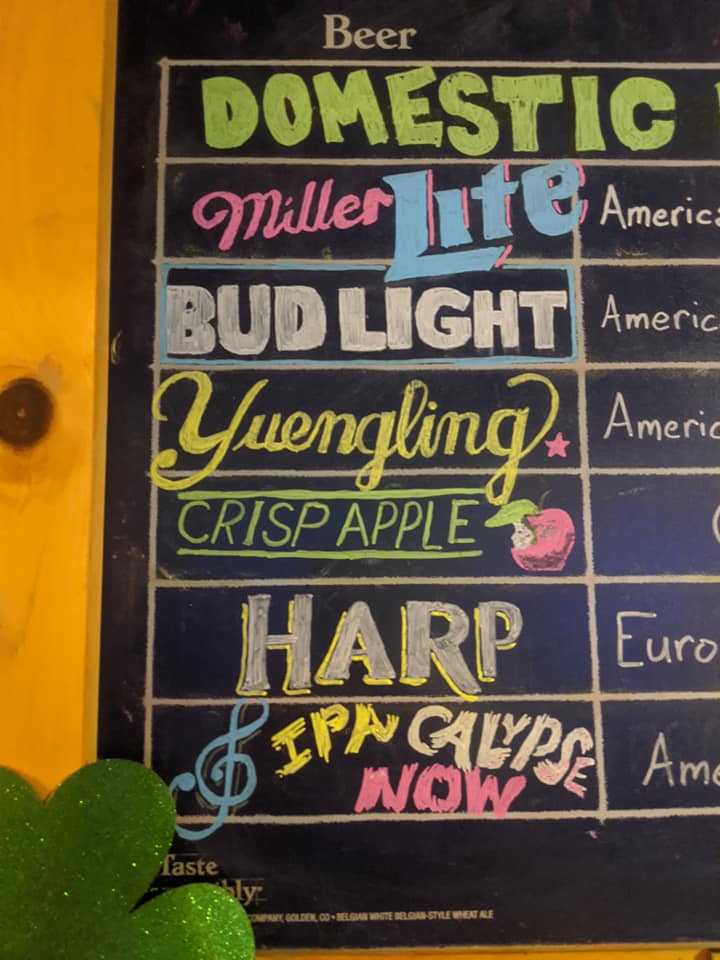 Beer
DOMESTIC
Miller Lite
Americ
BUD LIGHT
Americ
Yuengling
Americ
CRISP APPLE
HARP
Euro
IPA CALYPSE
NOW
Ame
Taste
COMPANY, GOLDEN, CO • BELGIAN WHITE BELGIAN-STYLE WHEAT ALE